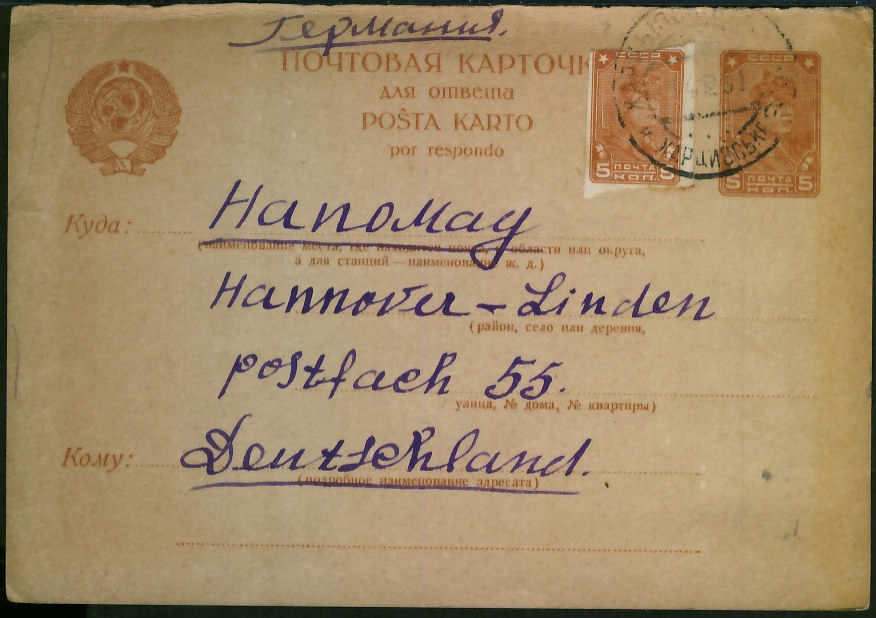 Германия.
ПОЧТОВАЯ КАРТОЧК
для ответа
POŜTA KARTO
por respondo
СССР
5 ПОЧТА КОП. 5
СССР
5 ПОЧТА КОП. 5
Куда: Hanomag
(наименование места, где находится почта, области или округа,
а для станций — наименование ж. д.)
Hannover – Linden
(район, село или деревня,
postfach 55.
улица, № дома, № квартиры)
Кому: Deutschland.
(подробное наименование адресата)